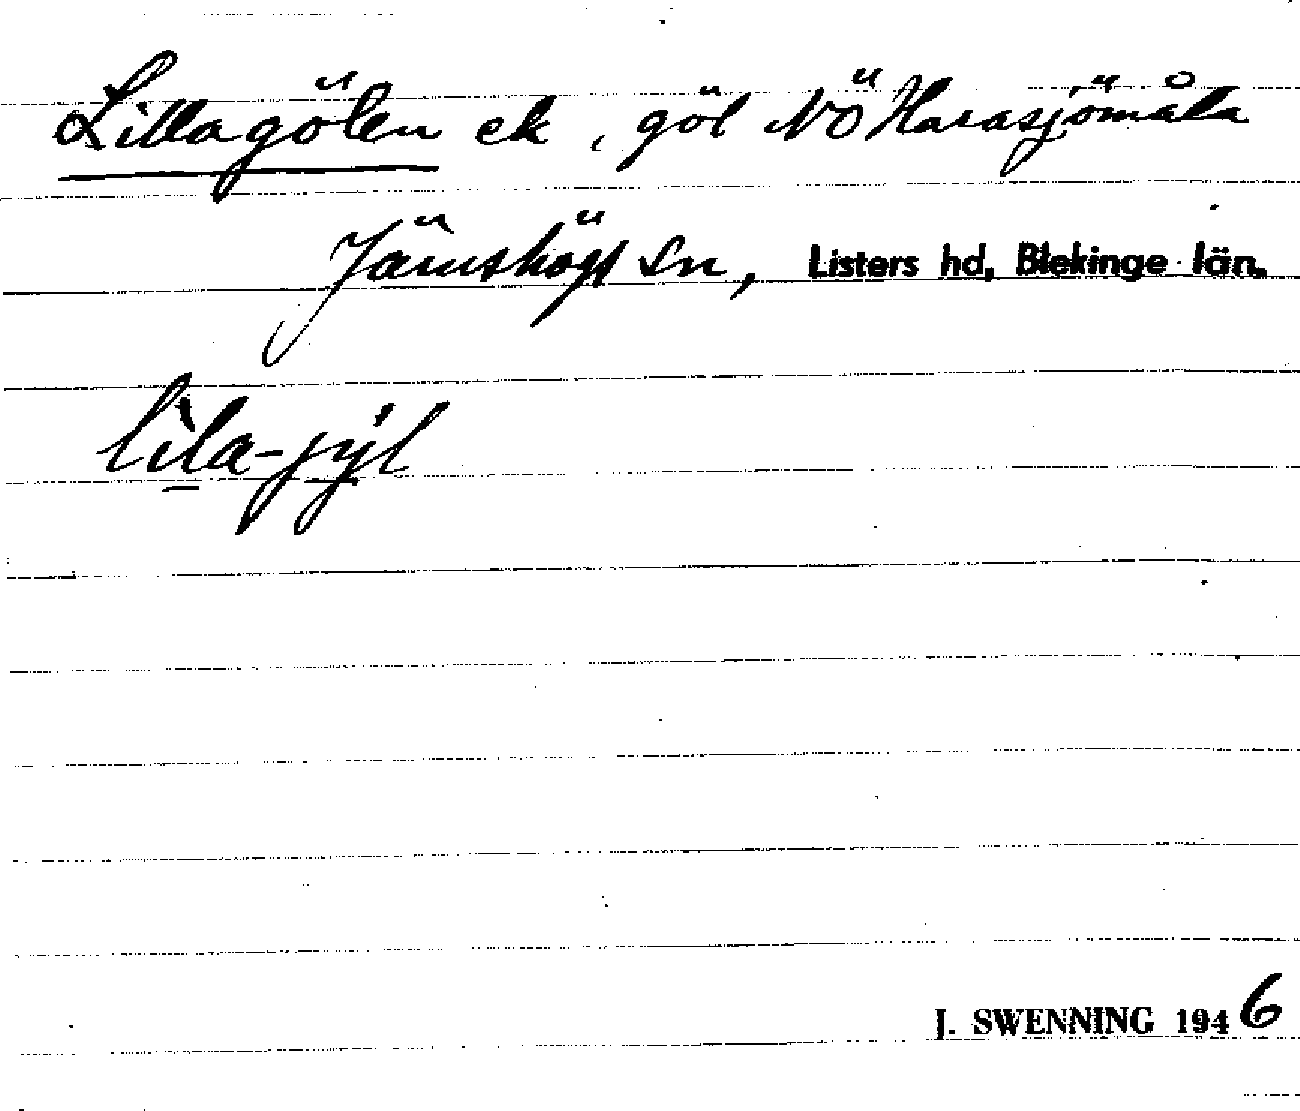 Lillagölen ek, göl NÖ Harasjömåla
Jämshögs sn, Listers hd, Blekinge län.
lìla-jýl
J. SWENNING 1946